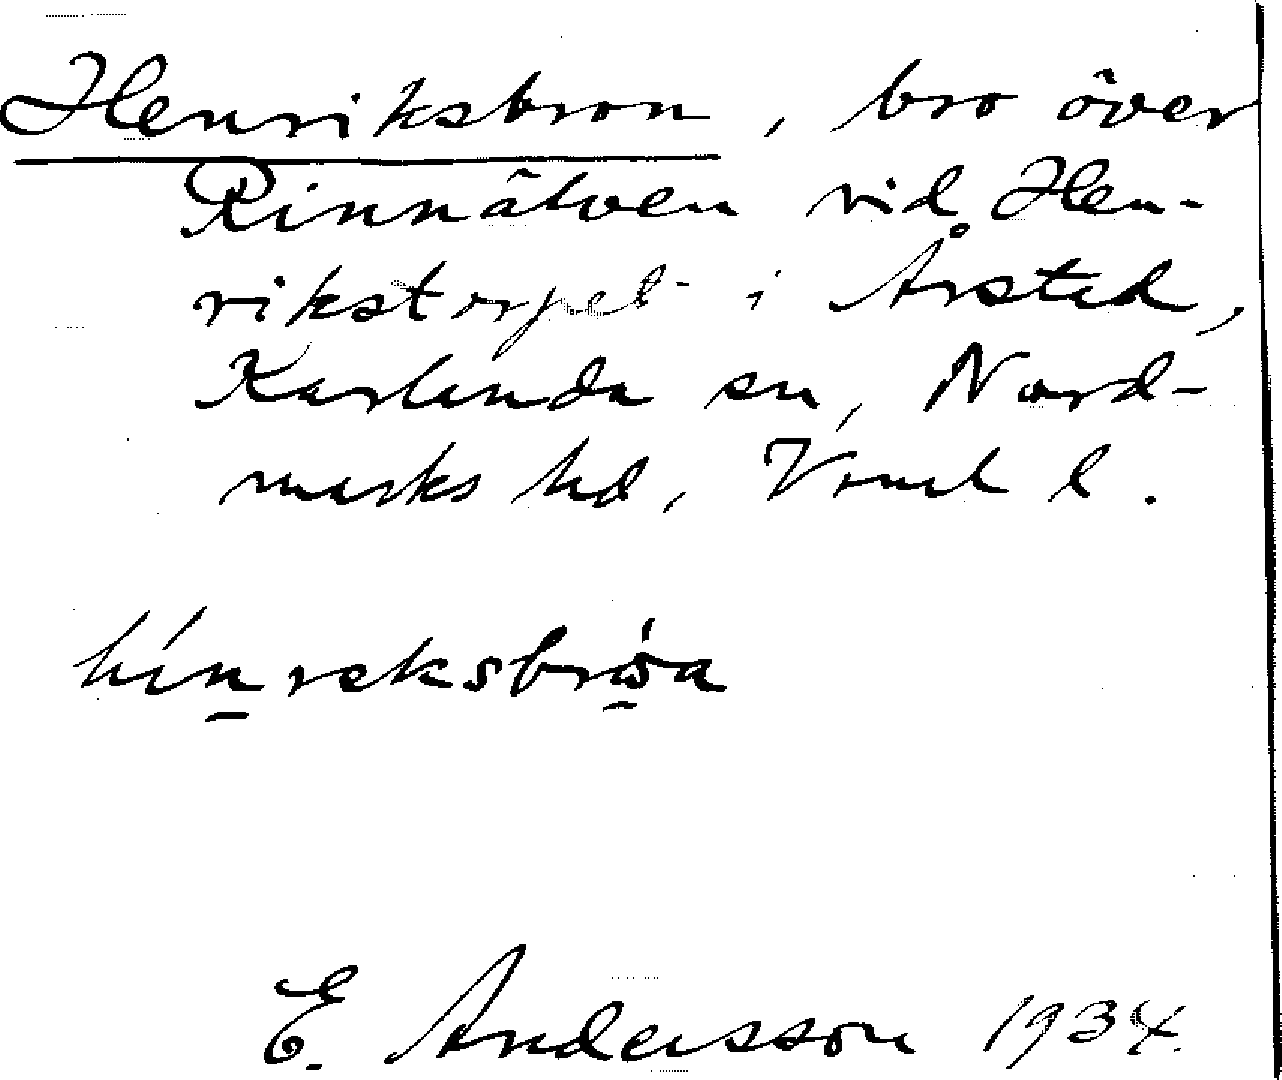 Henriksbron, bro över
Rinnälven vid Hen-
rikstorpet i Årstad,
Karlanda sn, Nord-
marks hd, Vrml l.
E. Andersson 1934.